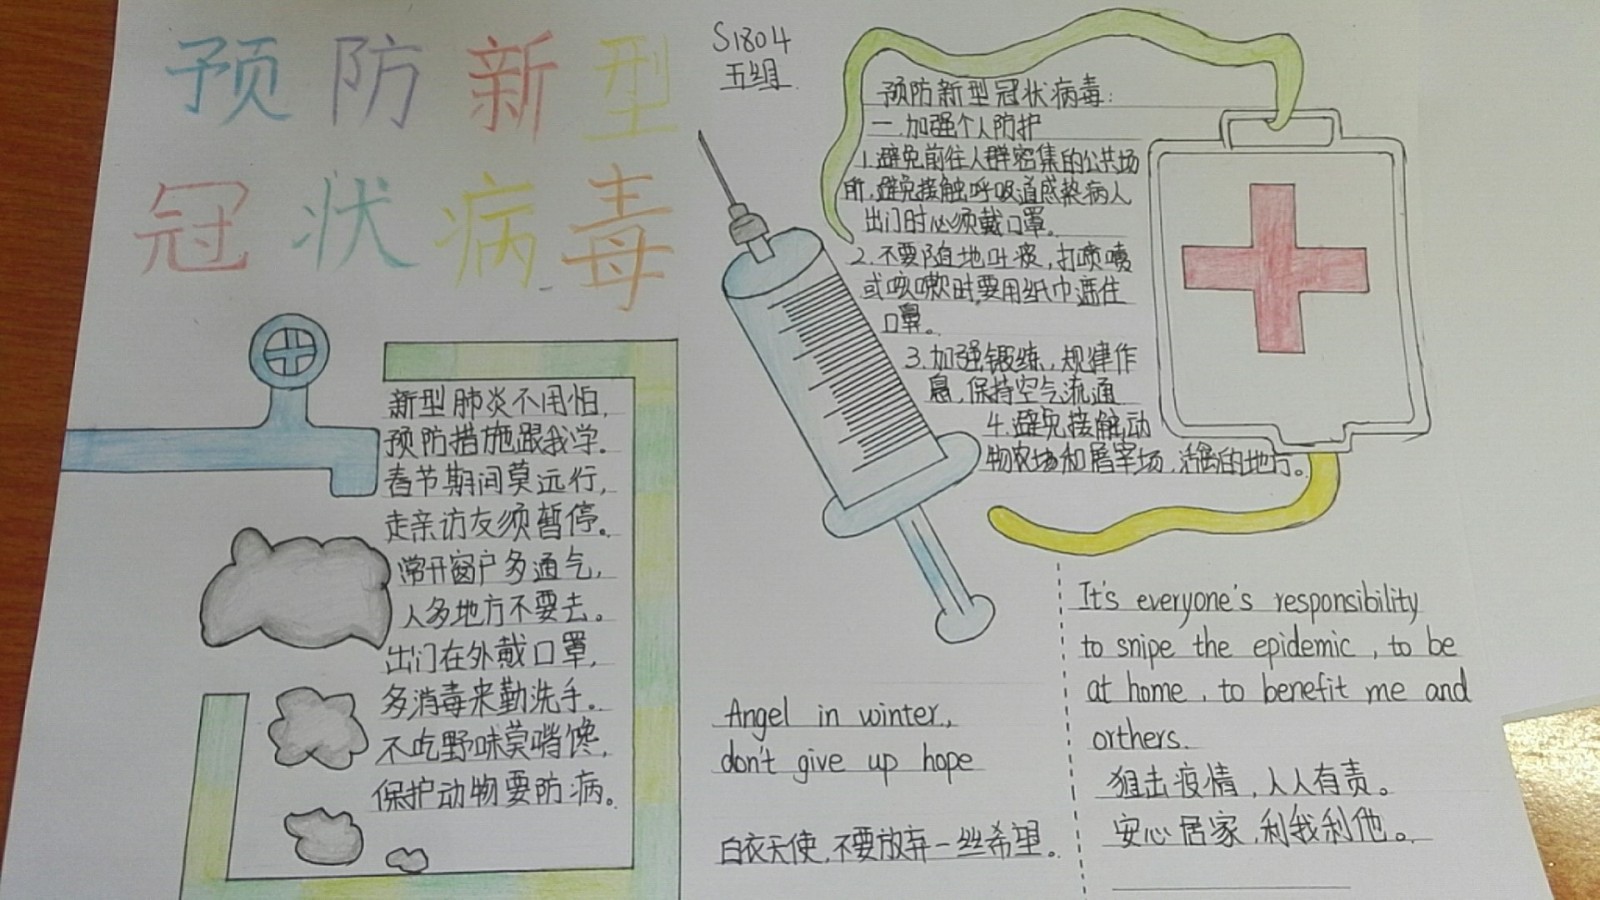 预防新型
冠状病毒
S1804
五组
预防新型冠状病毒:
一.加强个人防护
1.避免前往人群密集的公共场
所,避免接触呼吸道感染病人
出门时必须戴口罩。
2.不要随地吐痰,打喷嚏
或咳嗽时,要用纸巾遮住
口鼻。
3.加强锻练,规律作
息,保持空气流通
4.避免接触动
物农场和屠宰场,活禽的地方。
新型肺炎不用怕,
预防措施跟我学。
春节期间莫远行,
走亲访友须暂停。
常开窗户多通气,
人多地方不要去。
出门在外戴口罩,
多消毒来勤洗手。
不吃野味莫嘴馋,
保护动物要防病。
Angel in winter,
don't give up hope
白衣天使,不要放弃一丝希望。
It's everyone's responsibility
to snipe the epidemic, to be
at home, to benefit me and
orthers.
狙击疫情,人人有责。
安心居家,利我利他。